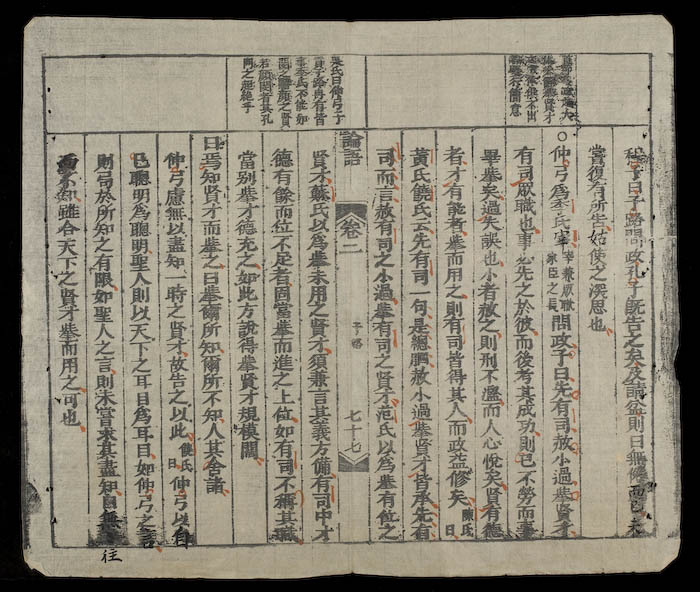 吳氏曰仲弓
貢子路冉有皆
事季氏不能如
若顔閔者其孔
門之超絶乎
程子曰子路問政孔子既告之矣及請益則曰無倦而已未
嘗復有所告姑使之深思也
○仲弓爲季氏宰宰兼衆職家臣之長問政子曰先有司赦小過舉賢才
有司衆職也事必先之於彼而後考其成功則己不勞而事
畢舉矣過失誤也小者赦之則刑不濫而人心悅矣賢有德
者才有能者舉而用之則有司皆得其人而政益修矣陳氏曰
黃氏饒氏云先有司一句是總腦赦小過舉賢才皆承先有
司而言赦有司之小過舉有司之賢才范氏以爲舉有位之
論語 卷二 子路 七十七
賢才蘇氏以爲舉未用之賢才須兼言其義方備有司中才
德有餘而位不足者固當舉而進之上位如有司不稱其職
當别舉才德充之如此方說得舉賢才規模闊
曰焉知賢才而舉之曰舉爾所知爾所不知人其舍諸
仲弓慮無以盡知一時之賢才故告之以此饒氏曰仲弓以自
己聰明爲聰明聖人則以天下之耳目爲耳目如仲弓之言
則局於所知之有限如聖人之言則未嘗求其盡知自無
往
而不知雖合天下之賢才舉而用之可也